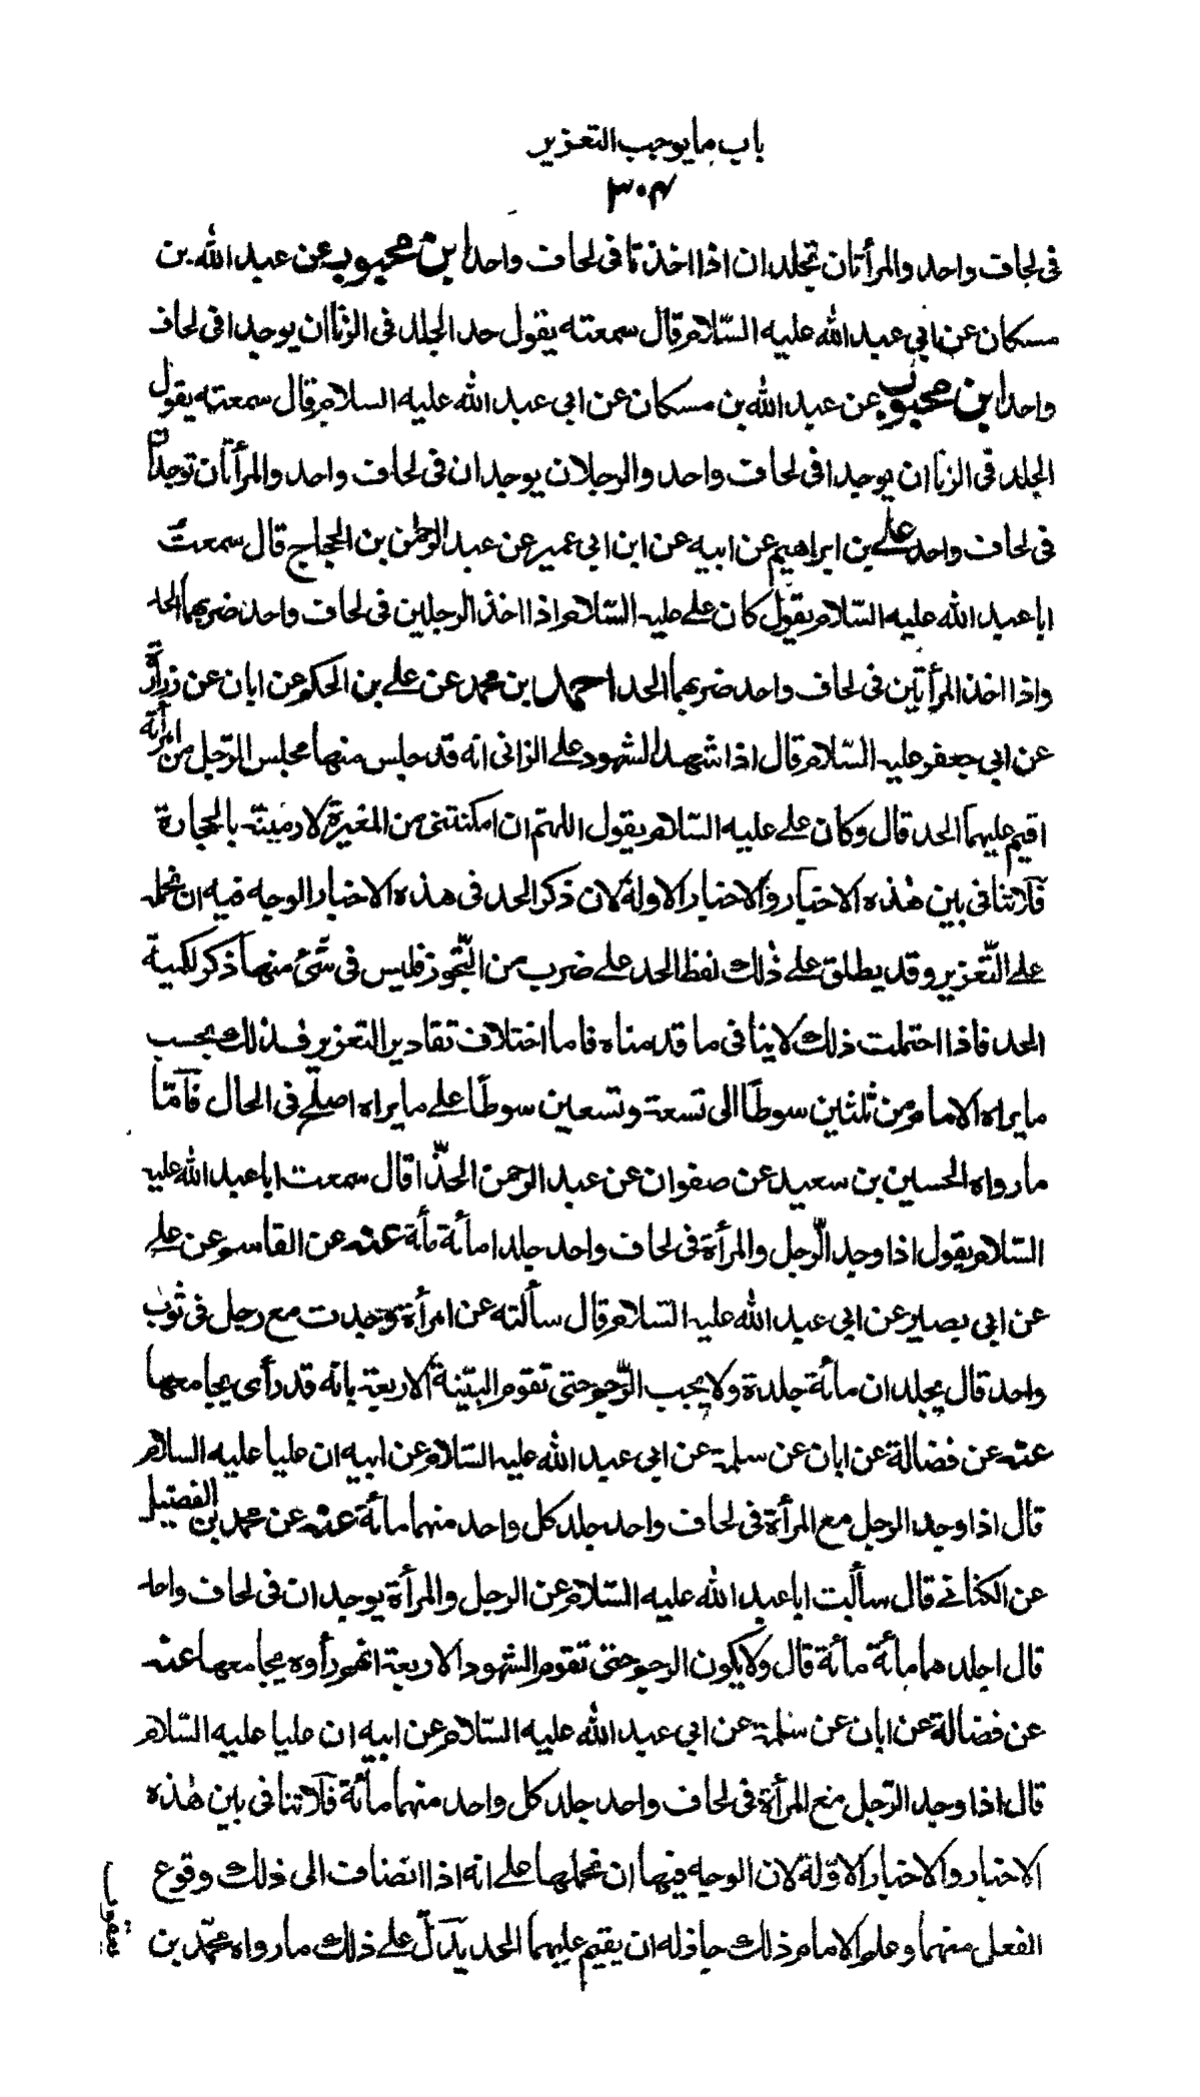 باب ما يوجب التعزير
٣٠٤
فى لحاف واحد والمرأتان تجلدان اذا اخذتا فى لحاف واحد ابن محبوب عن عبد الله بن
مسكان عن ابي عبد الله عليه السّلام قال سمعته يقول حد الجلد فى الزنا ان يوجدا فى لحاف
واحد ابن محبوب عن عبد الله بن مسكان عن ابي عبد الله عليه السلام قال سمعته يقول
الجلد فى الزنا ان يوجدا فى لحاف واحد والرجلان يوجدان فى لحاف واحد والمرأتان توجدان
فى لحاف واحد علي بن ابراهيم عن ابيه عن ابن ابي عمير عن عبد الرحمٰن بن الحجاج قال سمعت
ابا عبد الله عليه السّلام يقول كان علي عليه السّلام اذا اخذ الرجلين فى لحاف واحد ضربهما الحد
واذا اخذ المرأتين فى لحاف واحد ضربهما الحد احمد ابن محمد عن علي بن الحكم عن ابان عن زرارة
عن ابي جعفر عليه السّلام قال اذا شهد الشهود على الزانى انه قد جلس منها مجلس الرّجل من امرأته
اقيم عليهما الحد قال وكان علي عليه السّلام يقول اللهم ان امكنتنى من المغيرة لارمينه بالحجارة
فلا تنافى بين هٰذه الاخبار والاخبار الاولة لان ذكر الحد فى هذه الاخبار الوجه فيه ان نحمله
على التّعزير وقد يطلق على ذٰلك لفظ الحد على ضرب من التّجوز فليس فى شئ منها ذكر لكمية
الحد فاذا احتملت ذلك لا ينافى ما قدمناه فاما اختلاف تقادير التعزير فذلك بحسب
ما يراه الامام من ثلثين سوطًا الى تسعة وتسعين سوطًا على ما يراه اصلح فى الحال فأمّا
ما رواه الحسين بن سعيد عن صفوان عن عبد الرحمن الحذّا قال سمعت ابا عبد الله عليه
السّلام يقول اذا وجد الرّجل والمرأة فى لحاف واحد جلدا مأئة مأة عنه عن القاسم عن على
عن ابى بصير عن ابي عبد الله عليه السّلام قال سألته عن امرأة وجدت مع رجل فى ثوب
واحد قال يجلدان مائة جلدة ولا يجب الرّجم حتى تقوم البيّنة الاربعة بانه قد رأى يجامعها
عنه عن فضالة عن ابان عن سلمة عن ابي عبد الله عليه السّلام عن ابيه ان عليا عليه السلام
قال اذا وجد الرجل مع المرأة فى لحاف واحد جلد كل واحد منهما مائة عنه عن محمد بن الفضيل
عن الكنانى قال سألت ابا عبد الله عليه السّلام عن الرجل والمرأة يوجدان فى لحاف واحد
قال اجلدهما مأئة مأئة قال ولا يكون الرجم حتى تقوم الشهود الاربعة انهم رأوه يجامعها عنه
عن فضالة عن ابان عن سلمة عن ابي عبد الله عليه السّلام عن ابيه ان عليا عليه السّلام
قال اذا وجد الرّجل مع المرأة فى لحاف واحد جلد كل واحد منهما مائة فلا تنافى بين هٰذه
الاخبار والاخبار الاوّلة لان الوجه فيها ان نحملها على انه اذا انضاف الى ذلك وقوع
الفعل منهما وعلم الامام ذلك جاز له ان يقيم عليهما الحد يدلّ على ذلك ما رواه محمّد بن